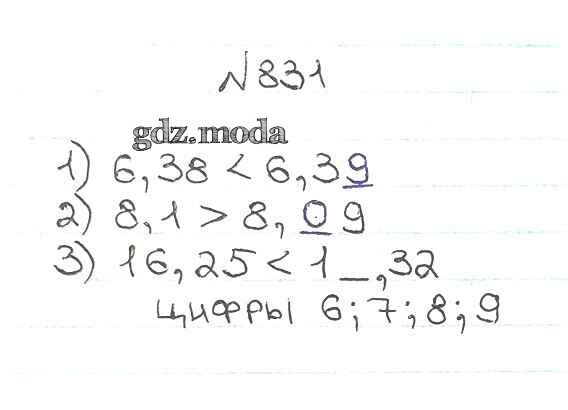 №831
gdz.moda
1) 6,38 < 6,39
2) 8,1 > 8,09
3) 16,25 < 1_,32
цифры 6; 7; 8; 9